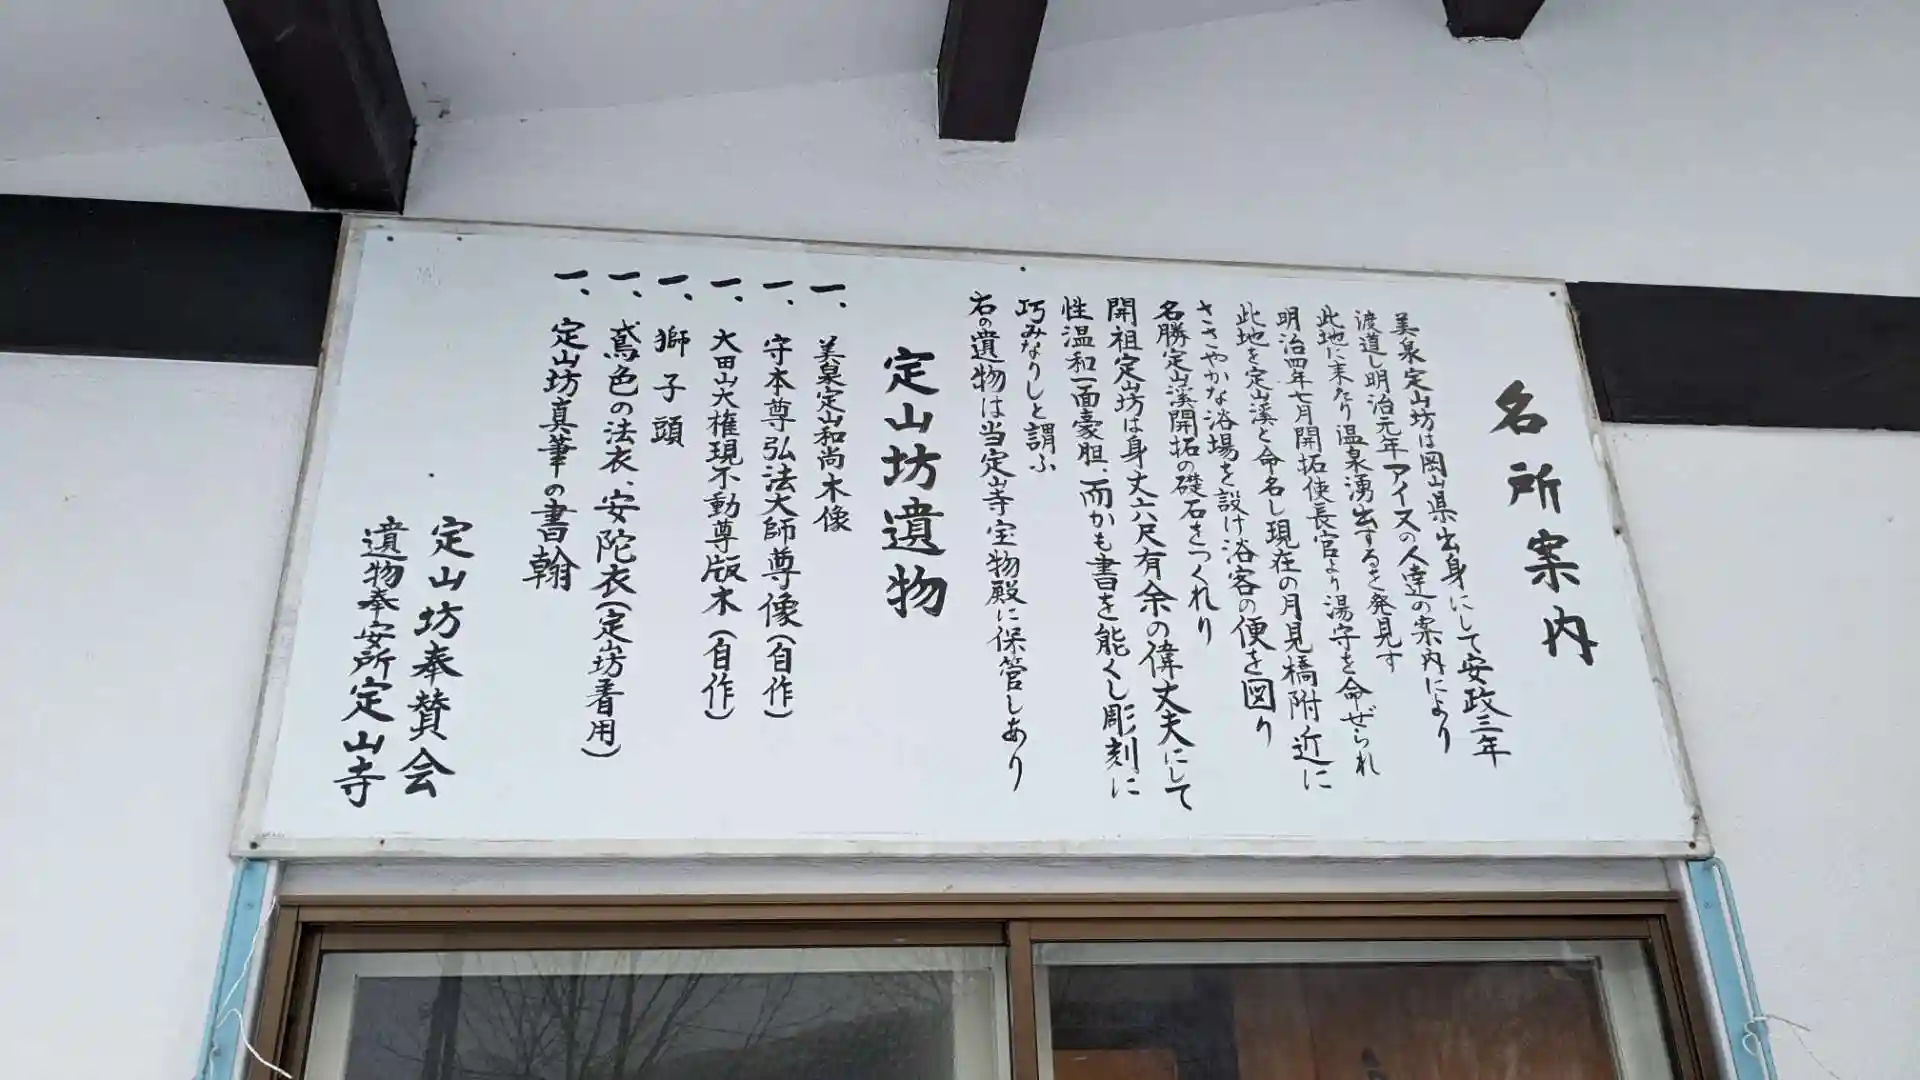 名所案内
美泉定山坊は岡山県出身にして安政三年
渡道し明治元年アイヌの人達の案内により
此地に来たり温泉湧出するを発見す
明治四年七月開拓使長官より湯守を命ぜられ
此地を定山溪と命名し現在の月見橋附近に
ささやかな浴場を設け浴客の便を図り
名勝定山溪開拓の礎石をつくれり
開祖定山坊は身丈六尺有余の偉丈夫にして
性温和一面豪胆、而かも書を能くし彫刻に
巧みなりしと謂ふ
右の遺物は当定山寺宝物殿に保管しあり
定山坊遺物
一、美泉定山和尚木像
一、守本尊弘法大師尊像(自作)
一、大田山大権現不動尊版木(自作)
一、獅子頭
一、鳶色の法衣、安陀衣(定山坊着用)
一、定山坊真筆の書翰
定山坊奉賛会
遺物奉安所定山寺